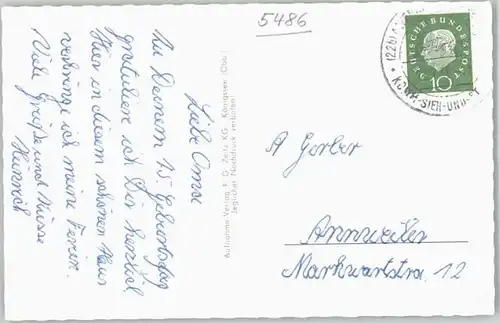 5486
Liebe Oma
Zu Deinem 75. Geburtstag
gratuliere ich Dir herzlich
Hier in diesem schönen Haus
verbringe ich meine Ferien.
Viele Grüße und Küsse
Heinrich
Aufnahme Verlag F. G. Zeitz KG., Königssee/Obb.
Jeglicher Nachdruck verboten!
DEUTSCHE BUNDESPOST
10
(22b)
A Gerber
Annweiler
Markwartstra. 12